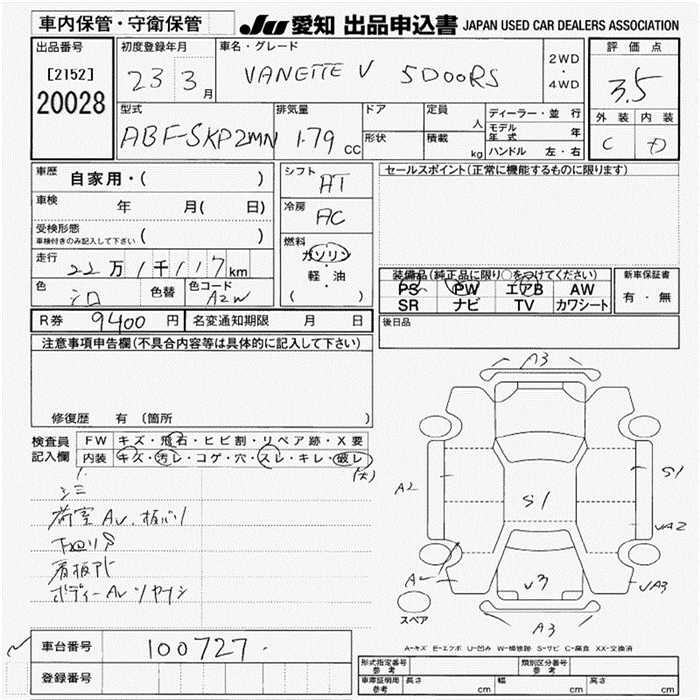 車内保管・守衛保管
JU 愛知 出品申込書 JAPAN USED CAR DEALERS ASSOCIATION
出品番号
[2152]
20028
初度登録年月
23 3月
車名・グレード
VANETTE V 5DOORS
2WD
・
4WD
評価点
3.5
外装 内装
C D
型式
ABF-SKP2MN
排気量
1.79 CC
ドア
形状
定員 人
積載 kg
ディーラー・並行
モデル年式 年
ハンドル 左・右
車歴 自家用・( )
車検 年 月( 日)
受検形態
車検付きのみ記入して下さい ( )
走行 22万1千117km
色 シロ 色替 色コード A2W
シフト AT
冷房 AC
燃料
ガソリン
・
軽・油
( )
セールスポイント(正常に機能するものに限ります)
装備品(純正品に限り○をつけてください)
PS PW エアB AW
SR ナビ TV カワシート
新車保証書
有・無
R券 9400 円 名変通知期限 月 日
後日品
注意事項申告欄(不具合内容等は具体的に記入して下さい)
修復歴 有 (箇所 )
検査員記入欄
FW キズ・飛石・ヒビ割・リペア跡・X要
内装 キズ・汚レ・コゲ・穴・スレ・キレ・破レ
(大)
シミ
荷室AU.板バリ
下廻りS
看板アト
A3
A2
S1
S1
UA2
UA3
A2
U3
A3
スペア
A-キズ E-エクボ U-凹み W-補修跡 S-サビ C-腐食 XX-交換済
車台番号 100727
登録番号
形式指定番号
参考
類別区分番号
参考
車庫証明用
参考
長さ cm 幅 cm 高さ cm